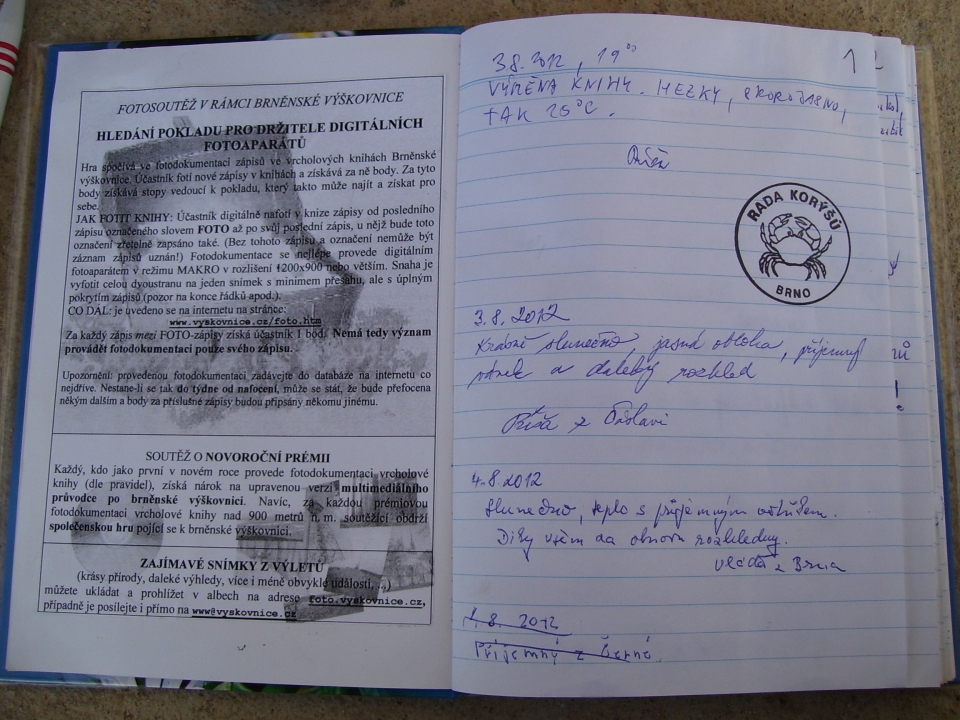 FOTOSOUTĚŽ V RÁMCI BRNĚNSKÉ VÝŠKOVNICE
HLEDÁNÍ POKLADU PRO DRŽITELE DIGITÁLNÍCH
FOTOAPARÁTŮ
Hra spočívá ve fotodokumentaci zápisů ve vrcholových knihách Brněnské
výškovnice. Účastník fotí nové zápisy v knihách a získává za ně body. Za tyto
body získává stopy vedoucí k pokladu, který takto může najít a získat pro
sebe.
JAK FOTIT KNIHY: Účastník digitálně nafotí v knize zápisy od posledního
zápisu označeného slovem FOTO až po svůj poslední zápis, u nějž bude toto
označení zřetelně zapsáno také. (Bez tohoto zápisu a označení nemůže být
záznam zápisů uznán!) Fotodokumentace se nejlépe provede digitálním
fotoaparátem v režimu MAKRO v rozlišení 1200x900 nebo větším. Snaha je
vyfotit celou dvoustranu na jeden snímek s minimem přesahu, ale s úplným
pokrytím zápisů (pozor na konce řádků apod.).
CO DÁL: je uvedeno se na internetu na stránce:
www.vyskovnice.cz/foto.htm
Za každý zápis mezi FOTO-zápisy získá účastník 1 bod. Nemá tedy význam
provádět fotodokumentaci pouze svého zápisu.
Upozornění: provedenou fotodokumentaci zadávejte do databáze na internetu co
nejdříve. Nestane-li se tak do týdne od nafocení, může se stát, že bude přefocena
někým dalším a body za příslušné zápisy budou připsány někomu jinému.
SOUTĚŽ O NOVOROČNÍ PRÉMII
Každý, kdo jako první v novém roce provede fotodokumentaci vrcholové
knihy (dle pravidel), získá nárok na upravenou verzi multimediálního
průvodce po brněnské výškovnici. Navíc, za každou prémiovou
fotodokumentaci vrcholové knihy nad 900 metrů n. m. soutěžící obdrží
společenskou hru pojící se k brněnské výškovnici.
ZAJÍMAVÉ SNÍMKY Z VÝLETŮ
(krásy přírody, daleké výhledy, více i méně obvyklé události, ...)
můžete ukládat a prohlížet v albech na adrese foto.vyskovnice.cz,
případně je posílejte i přímo na www@vyskovnice.cz
3.8.2012, 19°°
VÝMĚNA KNIHY. HEZKY, SKOROJASNO,
TAK 25°C.
RADA KORÝŠŮ
BRNO
3.8.2012
Krásně slunečno, jasná obloha, příjemný
vánek a daleký rozhled
Ríša z Oslavi
4.8.2012
Slunečno, teplo s příjemným větříkem.
Díky všem za obnovu rozhledny.
Vláďa z Brna
1.8. 2012
Příjemný z Černé